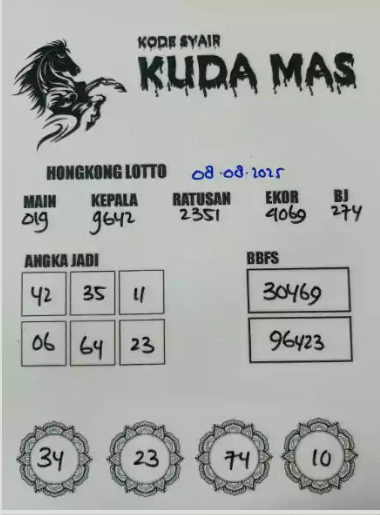 KODE SYAIR
KUDA MAS
HONGKONG LOTTO 08-08-2025
MAIN KEPALA RATUSAN EKOR BJ
019 9642 2351 4069 274
ANGKA JADI BBFS
42 35 11 30469
06 64 23 96423
34 23 74 10